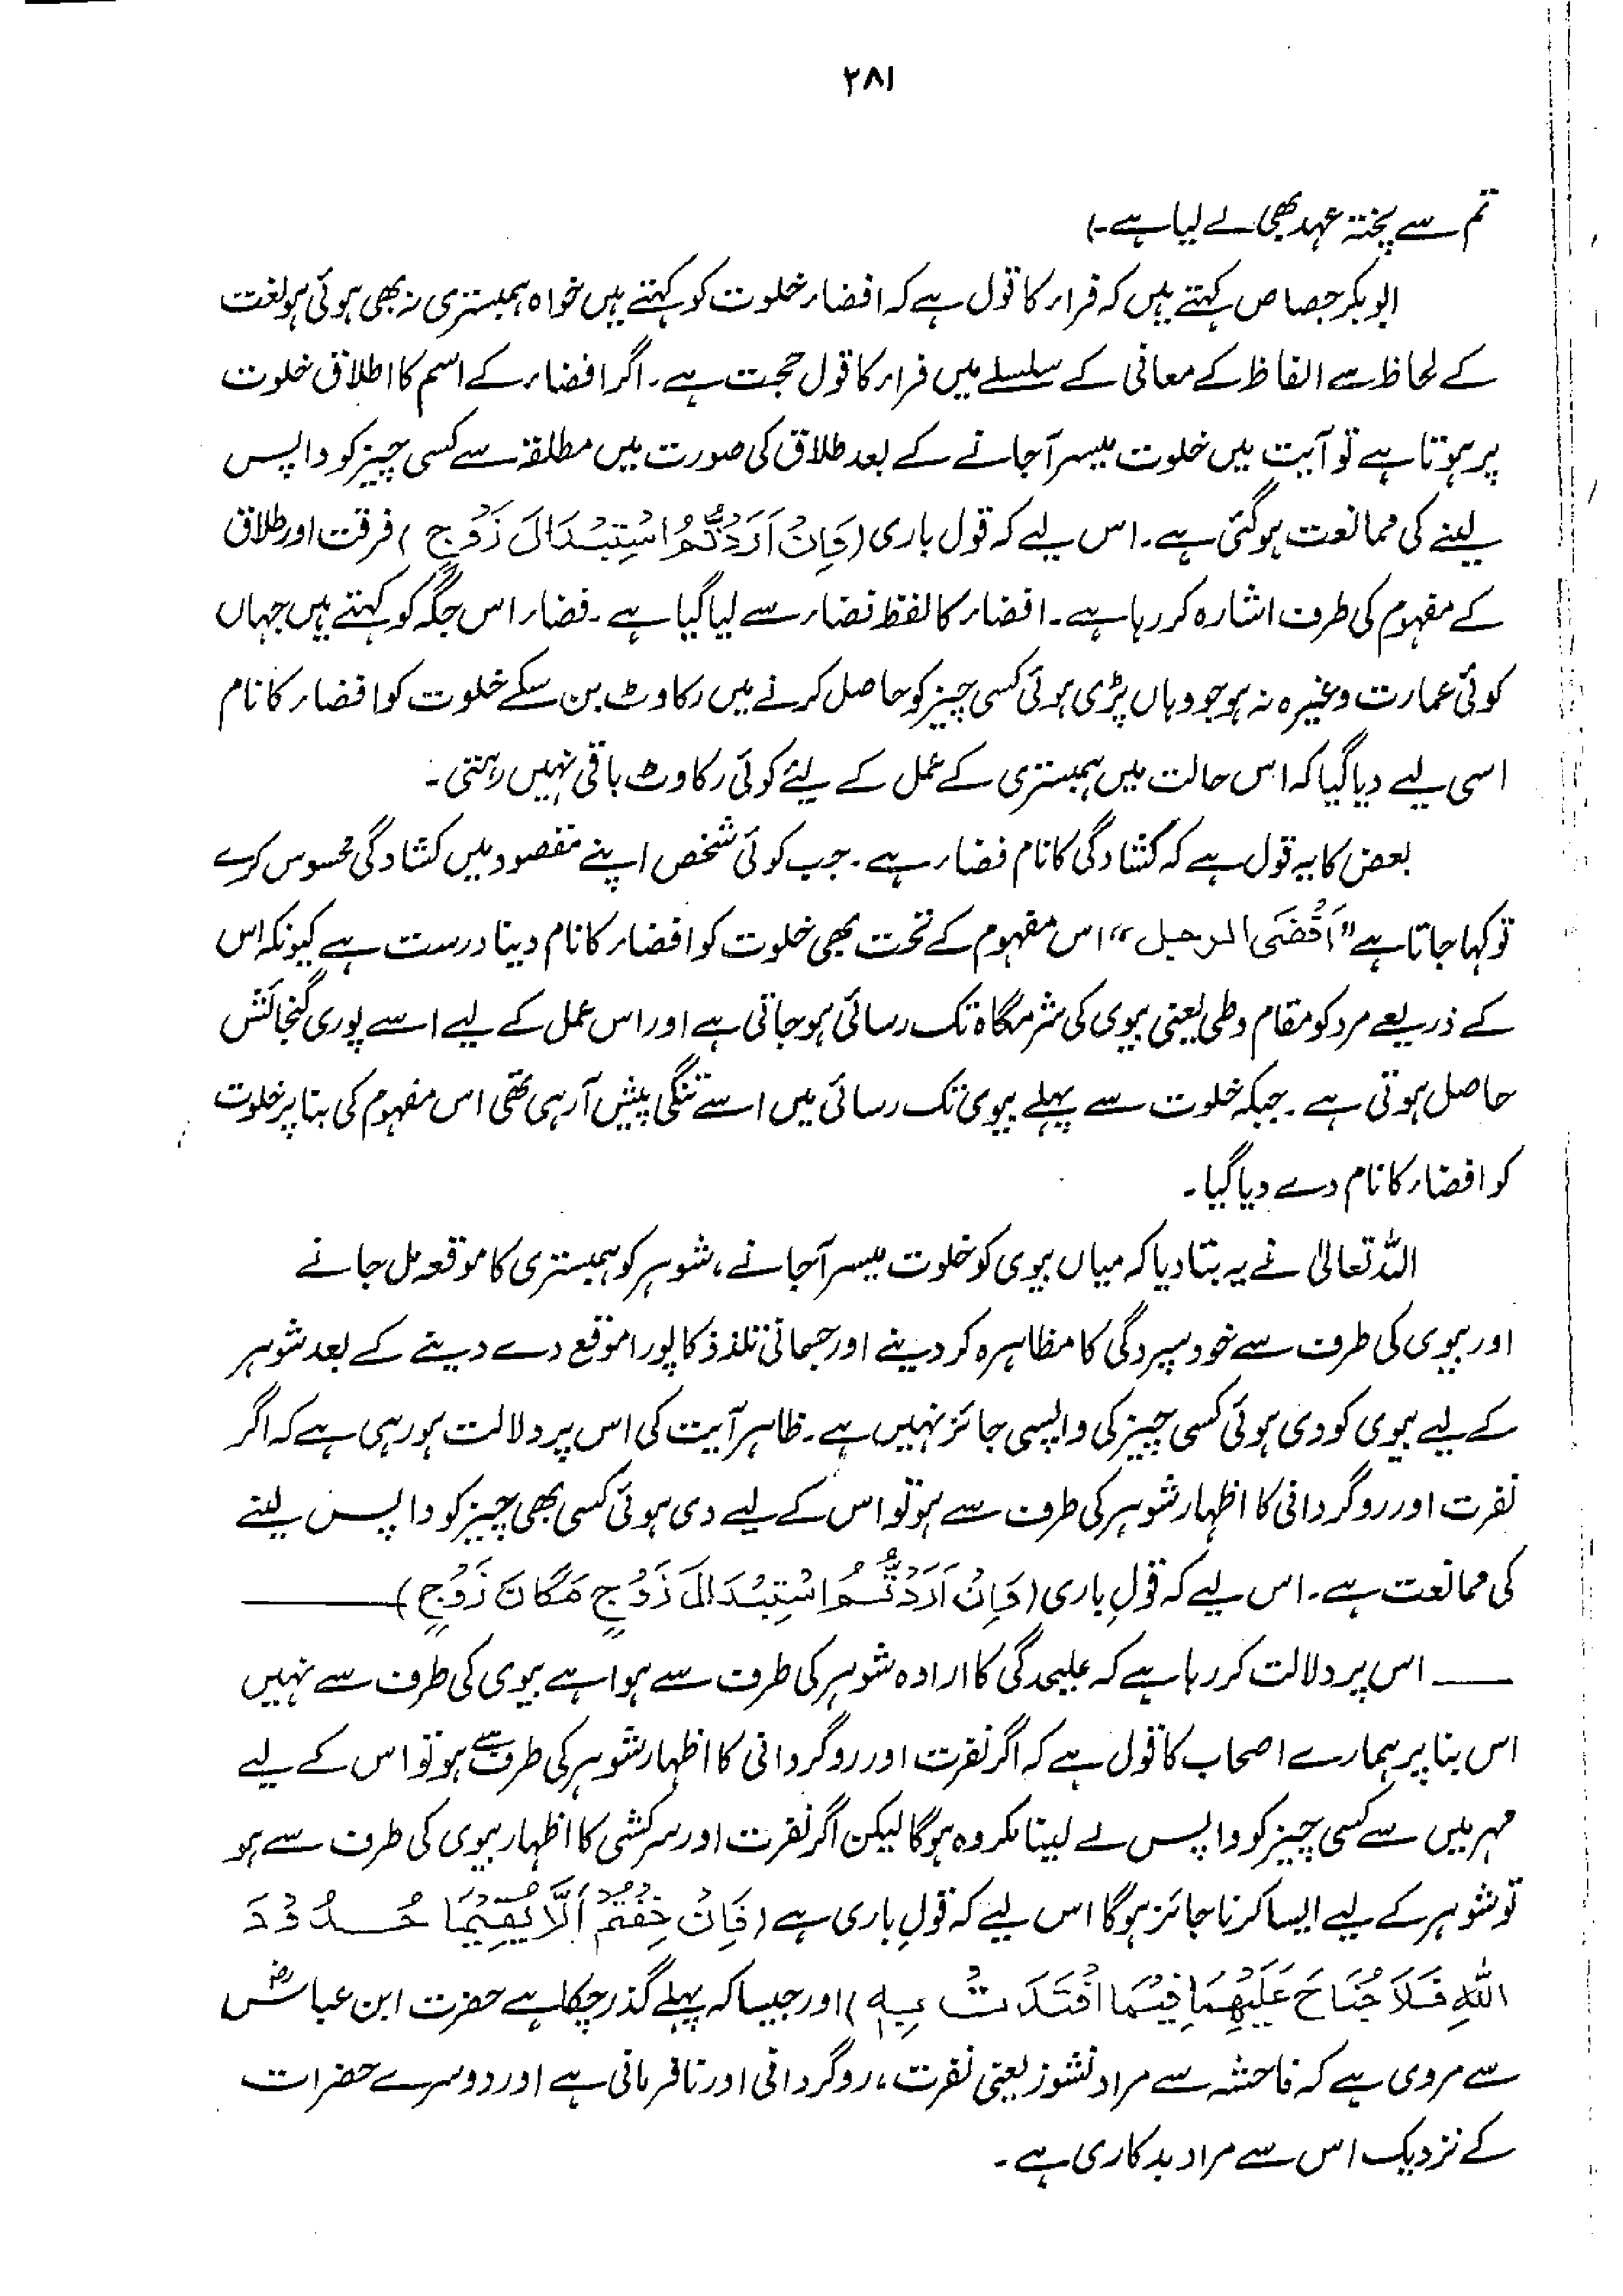 ۲۸۱
تم سے پختہ عہد بھی لے لیا ہے۔)
ابوبکر جصاص کہتے ہیں کہ فراء کا قول ہے کہ افضاء خلوت کو کہتے ہیں خواہ ہمبستری نہ بھی ہوئی ہو لغت
کے لحاظ سے الفاظ کے معانی کے سلسلے میں فراء کا قول حجت ہے۔ اگر افضاء کے اسم کا اطلاق خلوت
پر ہوتا ہے تو آیت میں خلوت میسر آجانے کے بعد طلاق کی صورت میں مطلقہ سے کسی چیز کو واپس
لینے کی ممانعت ہوگئی ہے۔ اس لیے کہ قول باری (وَاِنْ اَرَدْتُّمُ اسْتِبْدَالَ زَوْجٍ) فرقت اور طلاق
کے مفہوم کی طرف اشارہ کر رہا ہے۔ افضاء کا لفظ فضاء سے لیا گیا ہے۔ فضاء اس جگہ کو کہتے ہیں جہاں
کوئی عمارت وغیرہ نہ ہو جو وہاں پڑی ہوئی کسی چیز کو حاصل کرنے میں رکاوٹ بن سکے خلوت کو افضاء کا نام
اسی لیے دیا گیا کہ اس حالت میں ہمبستری کے عمل کے لیئے کوئی رکاوٹ باقی نہیں رہتی۔
بعض کا یہ قول ہے کہ کشادگی کا نام فضاء ہے۔ جب کوئی شخص اپنے مقصود میں کشادگی محسوس کرے
تو کہا جاتا ہے "اَفْضَی الرجل" اس مفہوم کے تحت بھی خلوت کو افضاء کا نام دینا درست ہے کیونکہ اس
کے ذریعے مرد کو مقام وطی یعنی بیوی کی شرمگاہ تک رسائی ہوجاتی ہے اور اس عمل کے لیے اسے پوری گنجائش
حاصل ہوتی ہے۔ جبکہ خلوت سے پہلے بیوی تک رسائی میں اسے تنگی پیش آرہی تھی اس مفہوم کی بنا پر خلوت
کو افضاء کا نام دے دیا گیا۔
اللہ تعالیٰ نے یہ بتا دیا کہ میاں بیوی کو خلوت میسر آجانے، شوہر کو ہمبستری کا موقعہ مل جانے
اور بیوی کی طرف سے خود سپردگی کا مظاہرہ کر دینے اور جسمانی تلذذ کا پورا موقع دے دینے کے بعد شوہر
کے لیے بیوی کو دی ہوئی کسی چیز کی واپسی جائز نہیں ہے۔ ظاہر آیت کی اس پر دلالت ہو رہی ہے کہ اگر
نفرت اور روگردانی کا اظہار شوہر کی طرف سے ہو تو اس کے لیے دی ہوئی کسی بھی چیز کو واپس لینے
کی ممانعت ہے۔ اس لیے کہ قولِ باری (وَاِنْ اَرَدْتُّمُ اسْتِبْدَالَ زَوْجٍ مَکَانَ زَوْجٍ) ———
— اس پر دلالت کر رہا ہے کہ علیحدگی کا ارادہ شوہر کی طرف سے ہوا ہے بیوی کی طرف سے نہیں
اس بنا پر ہمارے اصحاب کا قول ہے کہ اگر نفرت اور روگردانی کا اظہار شوہر کی طرف سے ہو تو اس کے لیے
مہر میں سے کسی چیز کو واپس لے لینا مکروہ ہوگا لیکن اگر نفرت اور سرکشی کا اظہار بیوی کی طرف سے ہو
تو شوہر کے لیے ایسا کرنا جائز ہوگا اس لیے کہ قولِ باری ہے (فَاِنْ خِفْتُمْ اَلَّا یُقِیْمَا حُدُوْدَ
اللّٰهِ فَلَا جُنَاحَ عَلَیْهِمَا فِیْمَا افْتَدَتْ بِهٖ) اور جیسا کہ پہلے گذر چکا ہے حضرت ابن عباسؓ
سے مروی ہے کہ فاحشہ سے مراد نشوز یعنی نفرت، روگردانی اور نافرمانی ہے اور دوسرے حضرات
کے نزدیک اس سے مراد بدکاری ہے۔